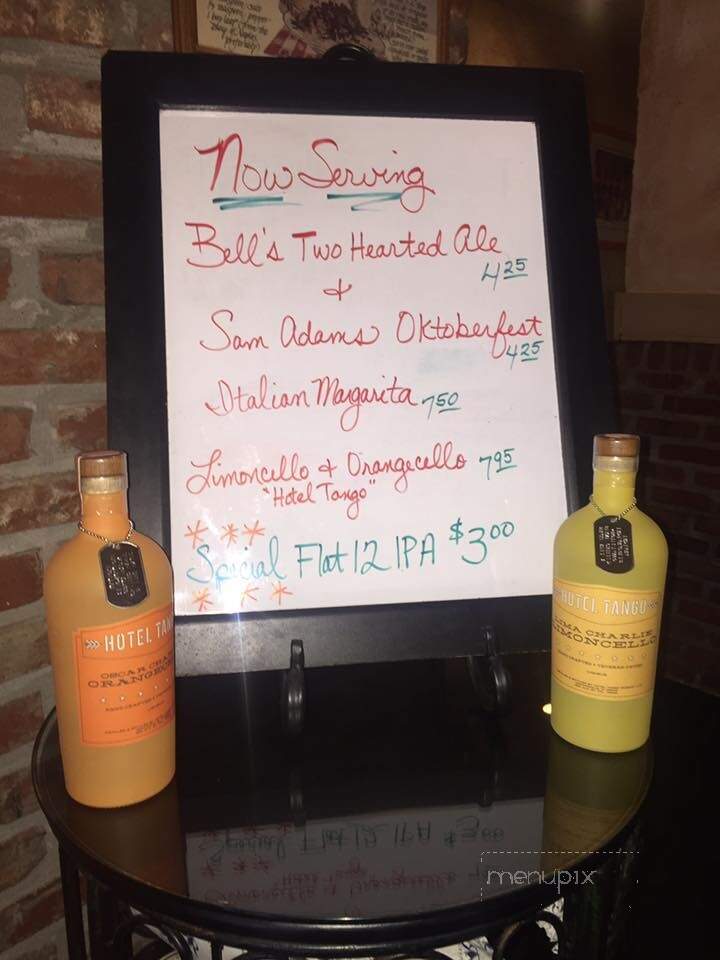 Now Serving
Bell's Two Hearted Ale
4 25
&
Sam Adams Oktoberfest
4 25
Italian Margarita 7 50
Limoncello & Orangecello 7 95
"Hotel Tango"
* * *
Special Flat 12 IPA $3 00
* * *
HOTEL TAN
OSCAR CHA
ORANGEC
HOTEL TANGO
LIMA CHARLIE
LIMONCELLO
menupix